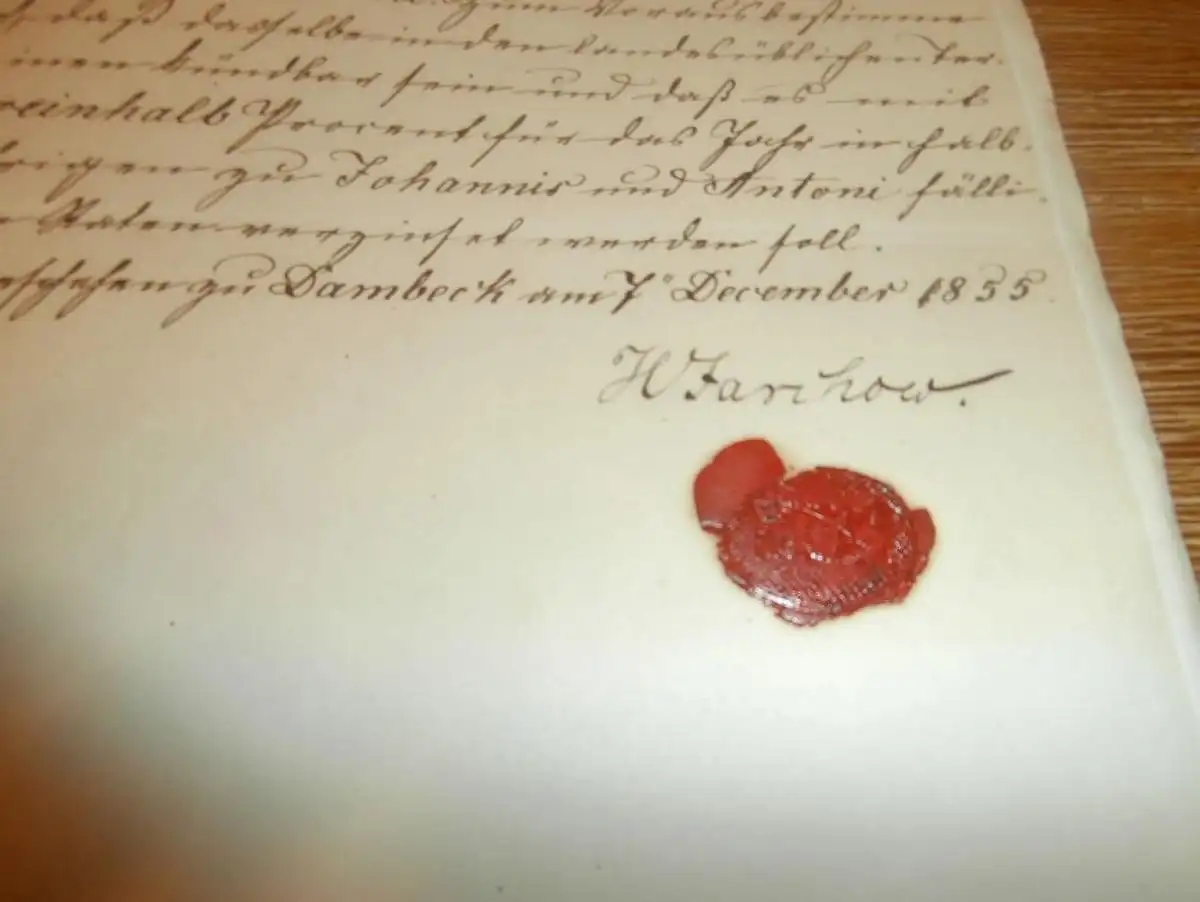 zum Voraus bestimme
daß dasselbe in den landesüblichen Ter-
inen kündbar sein und daß es mit
reinhalb Procent für das Jahr in halb-
rigen zu Johannis und Antoni fälli-
Raten verzinset werden soll.
eschehen zu Dambeck am 7° December 1855
H Jarchow.